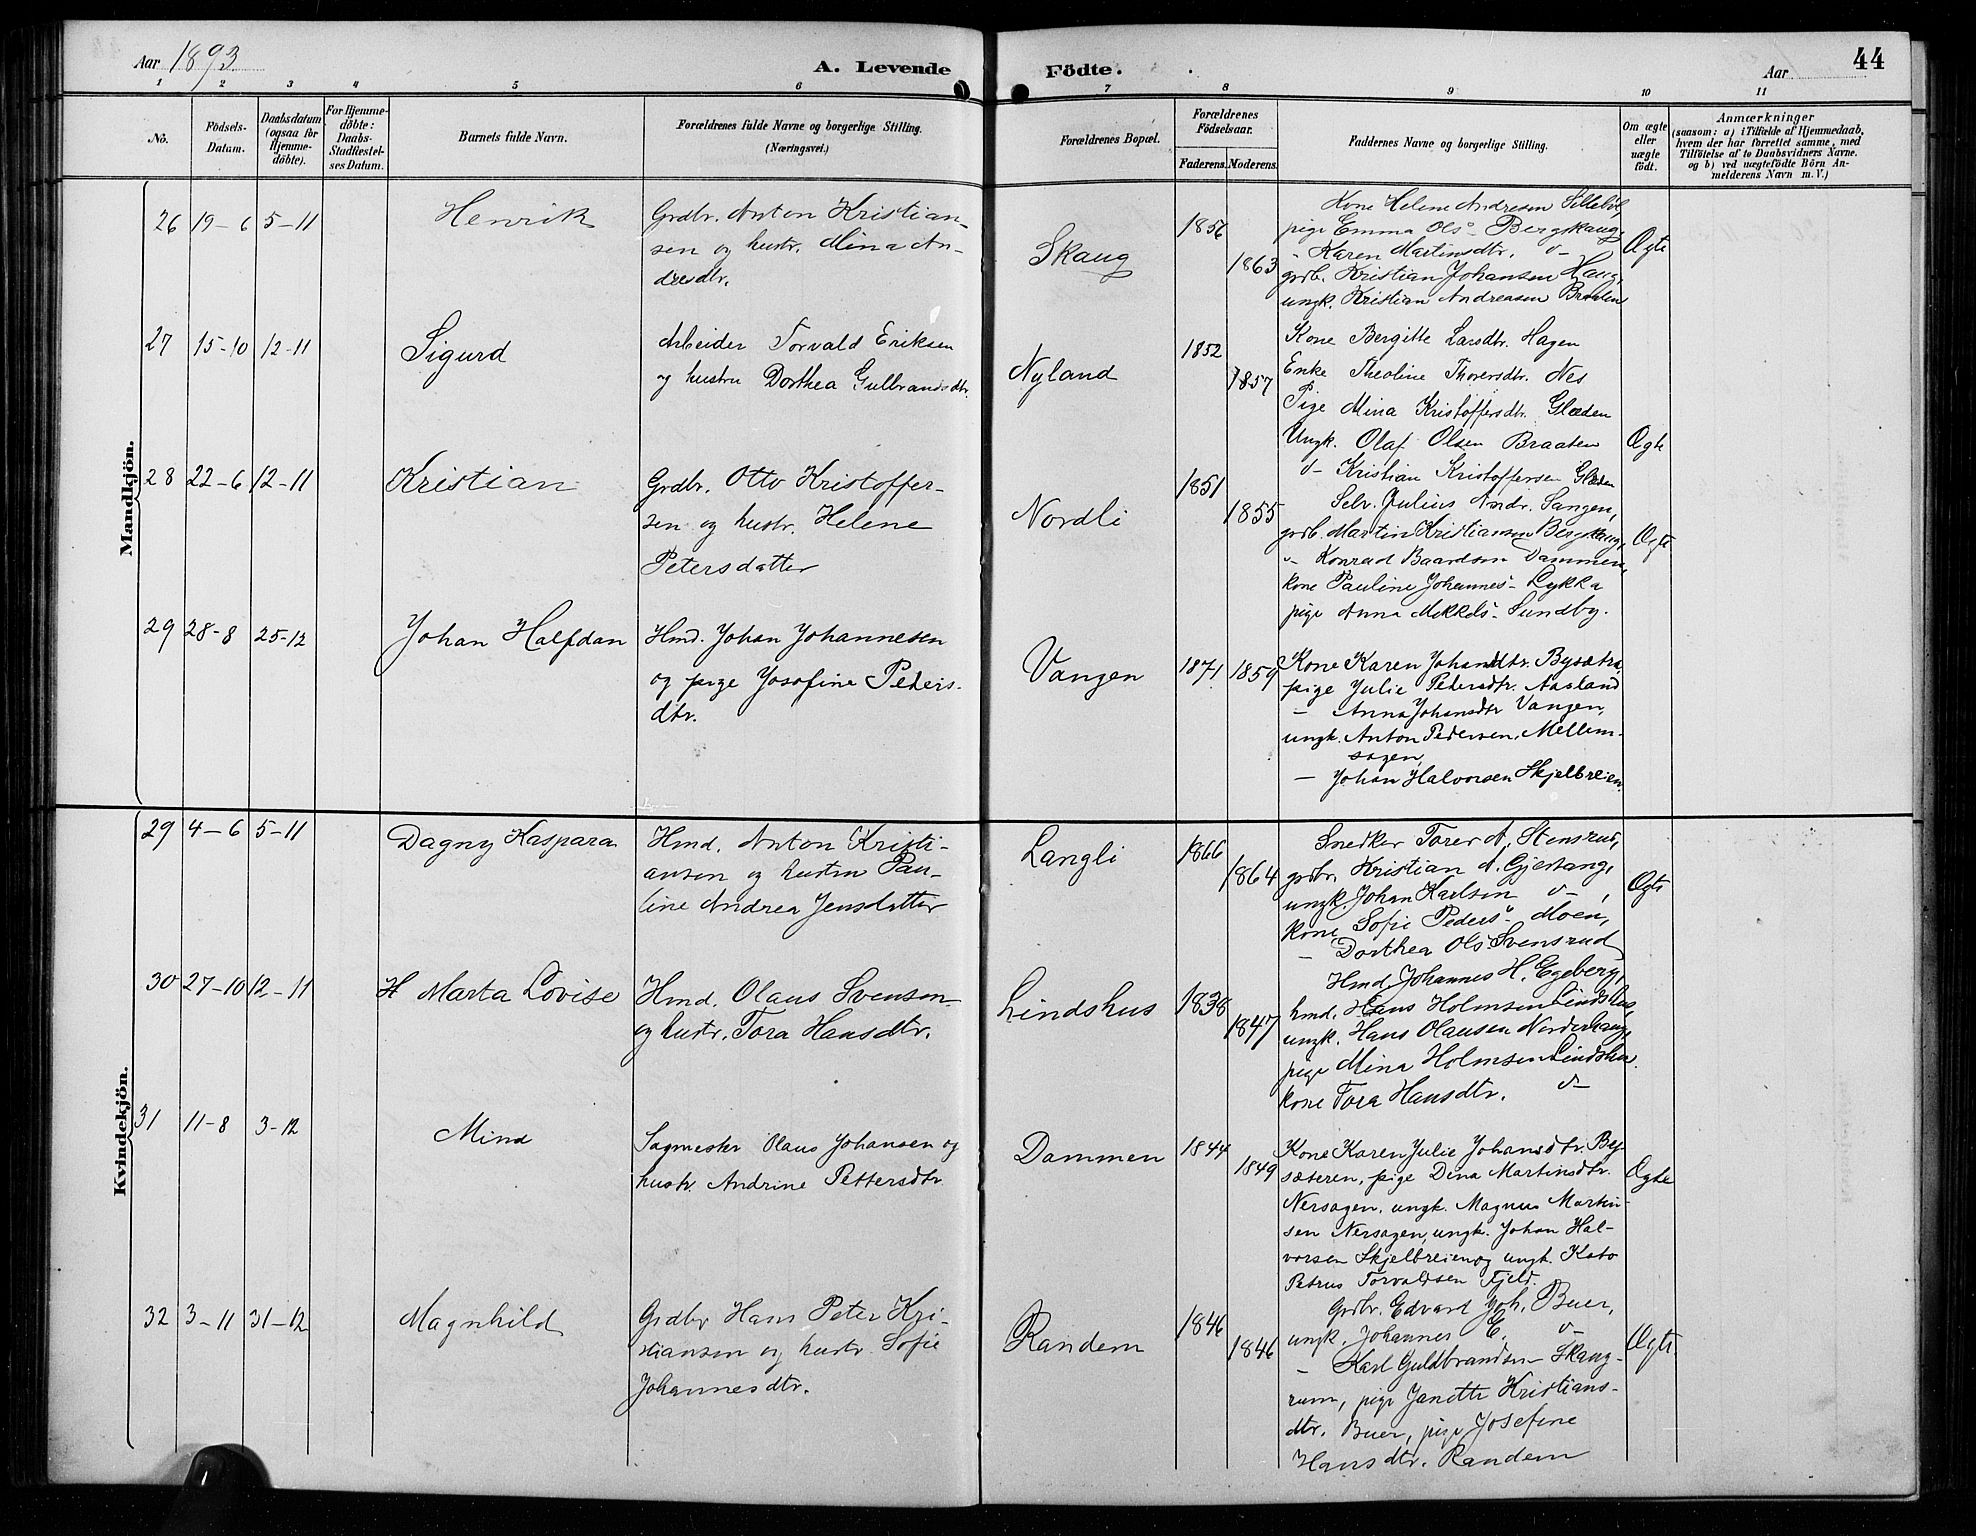 Aar 1893.
A. Levende Födte.
Aar
44
1 2 3 4 5 6 7 8 9 10 11
No.
Födsels-
Datum.
Daabsdatum
(ogsaa for
Hjemme-
döbte).
For Hjemme-
döbte:
Daabs-
Stadfæstel-
ses Datum.
Barnets fulde Navn.
Forældrenes fulde Navne og borgerlige Stilling.
(Næringsvei.)
Forældrenes Bopæl.
Forældrenes
Födselsaar.
Faderens. Moderens.
Faddernes Navne og borgerlige Stilling.
Om ægte
eller
uægte
födt.
Anmærkninger
(saasom: a) i Tilfælde af Hjemmedaab,
hvem der har forrettet samme, med
Tilföielse af to Daabsvidners Navne.
og b) ved uægtefödte Börn An-
melderens Navn m. V.)
Mandkjön.
26 19-6 5-11 Henrik
Grdbr. Anton Kristian-
sen og hustr. Mina An-
dresdtr.
Skaug
1856 1863
Kone Helene Andresen
pige Emma Ols- Bergskaug,
- Karen Martinsdtr. o-
grdb. Kristian Johansen Haug,
ungk. Kristian Andreasen Braaten
Ægte
27 15-10 12-11 Sigurd
Arbeider Torvald Eriksen
og hustru Dorthea Gulbrandsdtr.
Nyland
1852 1857
Kone Bergitte Larsdtr. Hagen
Enke Theoline Thorersdtr. Nes
Pige Mina Kristoffersdtr. Glæden
Ungk. Olaf Olsen Braaten
o- Kristian Kristoffersen Glæden
Ægte
28 22-6 12-11 Kristian
Grdbr. Otto Kristoffer-
sen og hustr. Helene
Petersdatter
Nordli
1851 1855
Selv. Julius Andr. Sangen,
grdb. Martin Kristiansen Bergskaug,
o- Konrad Baardsen Dammen,
kone Pauline Johannes- Lykka
pige Anna Mikkels- Sundby.
Ægte
29 28-8 25-12 Johan Halfdan
Hmd. Johan Johannesen
og pige Josefine Peters-
dtr.
Vangen
1871. 1859
Kone Karen Johansdtr. Bysætra
pige Julie Petersdtr. Aasland
- Anna Johansdtr Vangen,
ungk. Anton Pedersen, Mellem-
sagen,
- Johan Halvorsen Skjelbreien.
Kvindekjön.
29 4-6 5-11 Dagny Kaspara
Hmd. Anton Kristi-
ansen og hustru Pau-
line Andrea Jensdatter
Langli
1866 1864
Snedker Torer A. Stensrud,
grdbr. Kristian A. Gjestang,
ungk. Johan Karlsen o-,
kone Sofie Peders- Moen,
- Dorthea Ols- Svensrud
Ægte
30 27-10 12-11 H Marta Lovise
Hmd. Olaus Svensen
og hustr. Tora Hansdtr.
Lindshus
1838 1847
Hmd Johannes H. Egeberg,
hmd. Hans Holmsen Lindshus,
ungk. Hans Olausen Norderhaug,
pige Mina Holmsen Lindshus.
kone Tora Hansdtr. o-
31 11-8 3-12 Mina
Sagmester Olaus Johansen og
hustr. Andrine Pettersdtr
Dammen
1844 1849
Kone Karen Julie Johansdtr. By-
sæteren, pige Dina Martinsdtr.
Nersagen, ungk. Magnus Martin-
sen Nersagen, ungk. Johan Hal-
vorsen Skjelbreien og ungk. Kato
Petrus Torvaldsen Fjeld.
Ægte
32 3-11 31-12 Magnhild
Grdbr Hans Peter Kri-
stiansen og hustr. Sofie
Johannesdtr.
Randem
1846 1846
Grdbr. Edvard Joh. Buer,
ungk. Johannes E. o-
- Karl Guldbrandsen Skaug-
rum, pige Janette Kristians-
dtr. Buer, pige Josefine
Hansdtr. Randem
Ægte